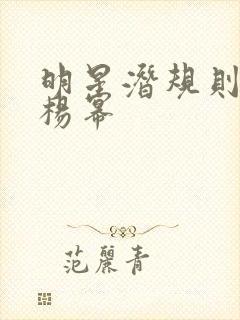 明星潛規則
楊冪
范麗青